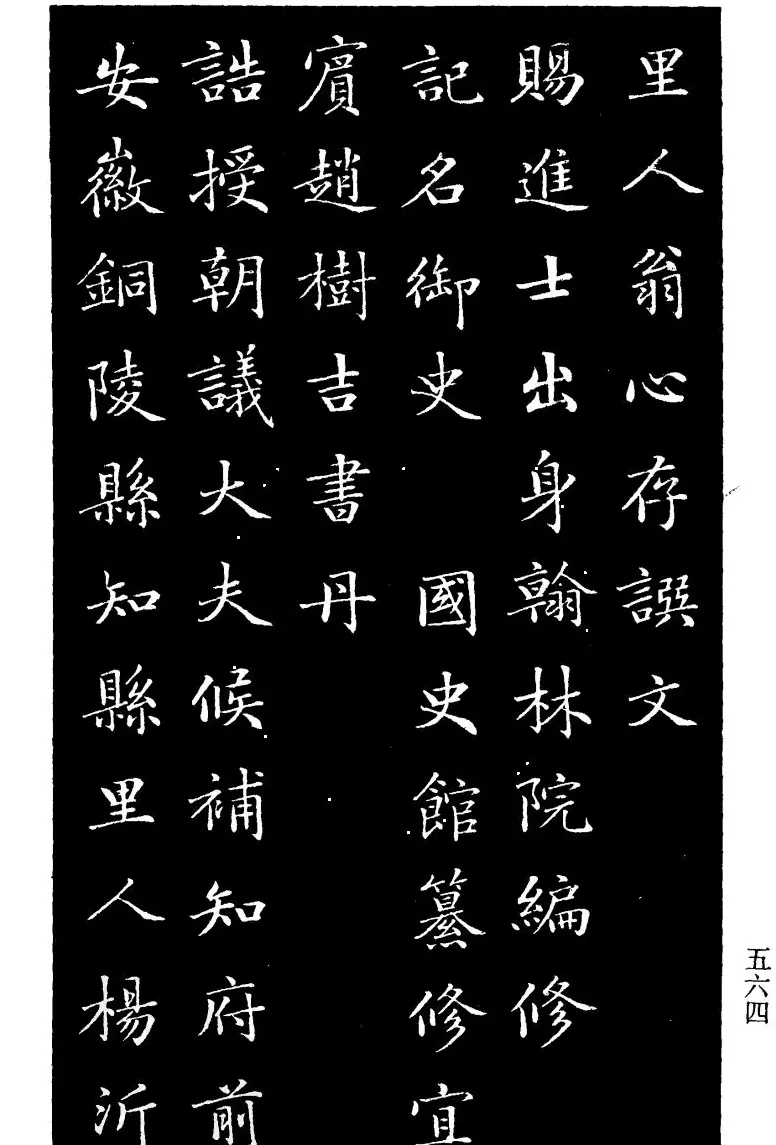 里人翁心存譔文
賜進士出身翰林院編修
記名御史 國史館纂修宜
賓趙樹吉書丹
誥授朝議大夫候補知府前
安徽銅陵縣知縣里人楊沂
五六四